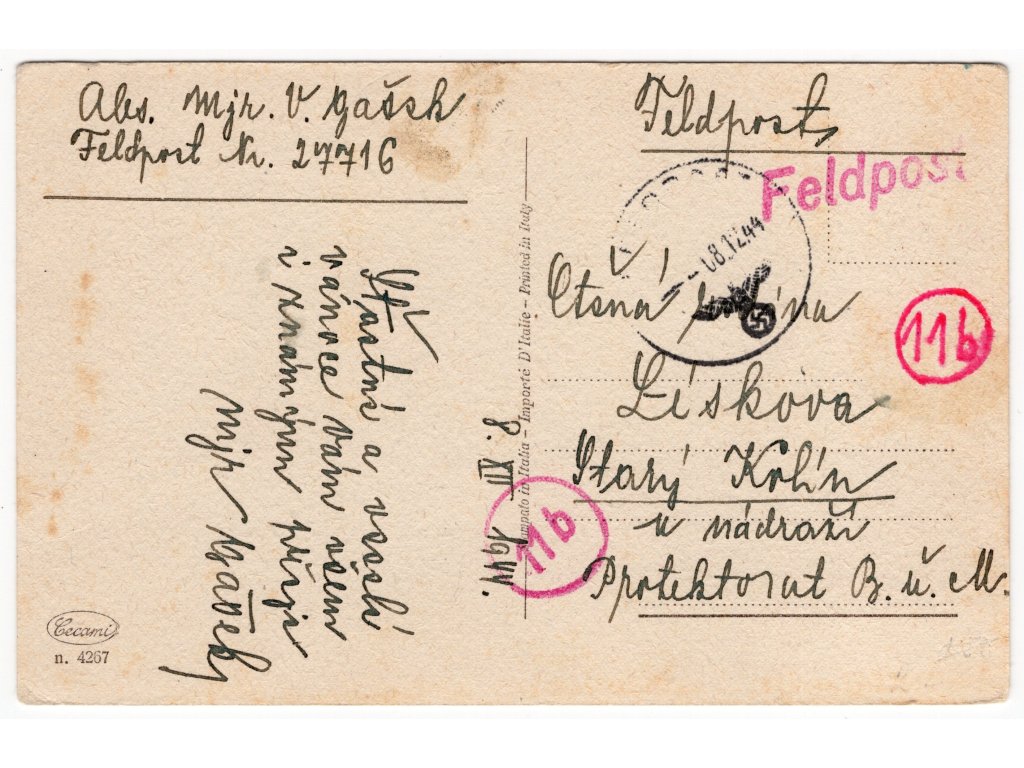 Abs. Mjr. V. Gašek
Feldpost Nr. 27716
Feldpost
Feldpost
08.12.44
Ctěná
Lískova
Starý Kolín
u nádraží
Protektorat B. ü. M.
11b
11b
8. XII 1944.
Šťastné a veselé
vánoce vám všem
i známým přeje
mjr Gašek
Stampato in Italia – Importé D'Italie – Printed in Italy
Cecami
n. 4267